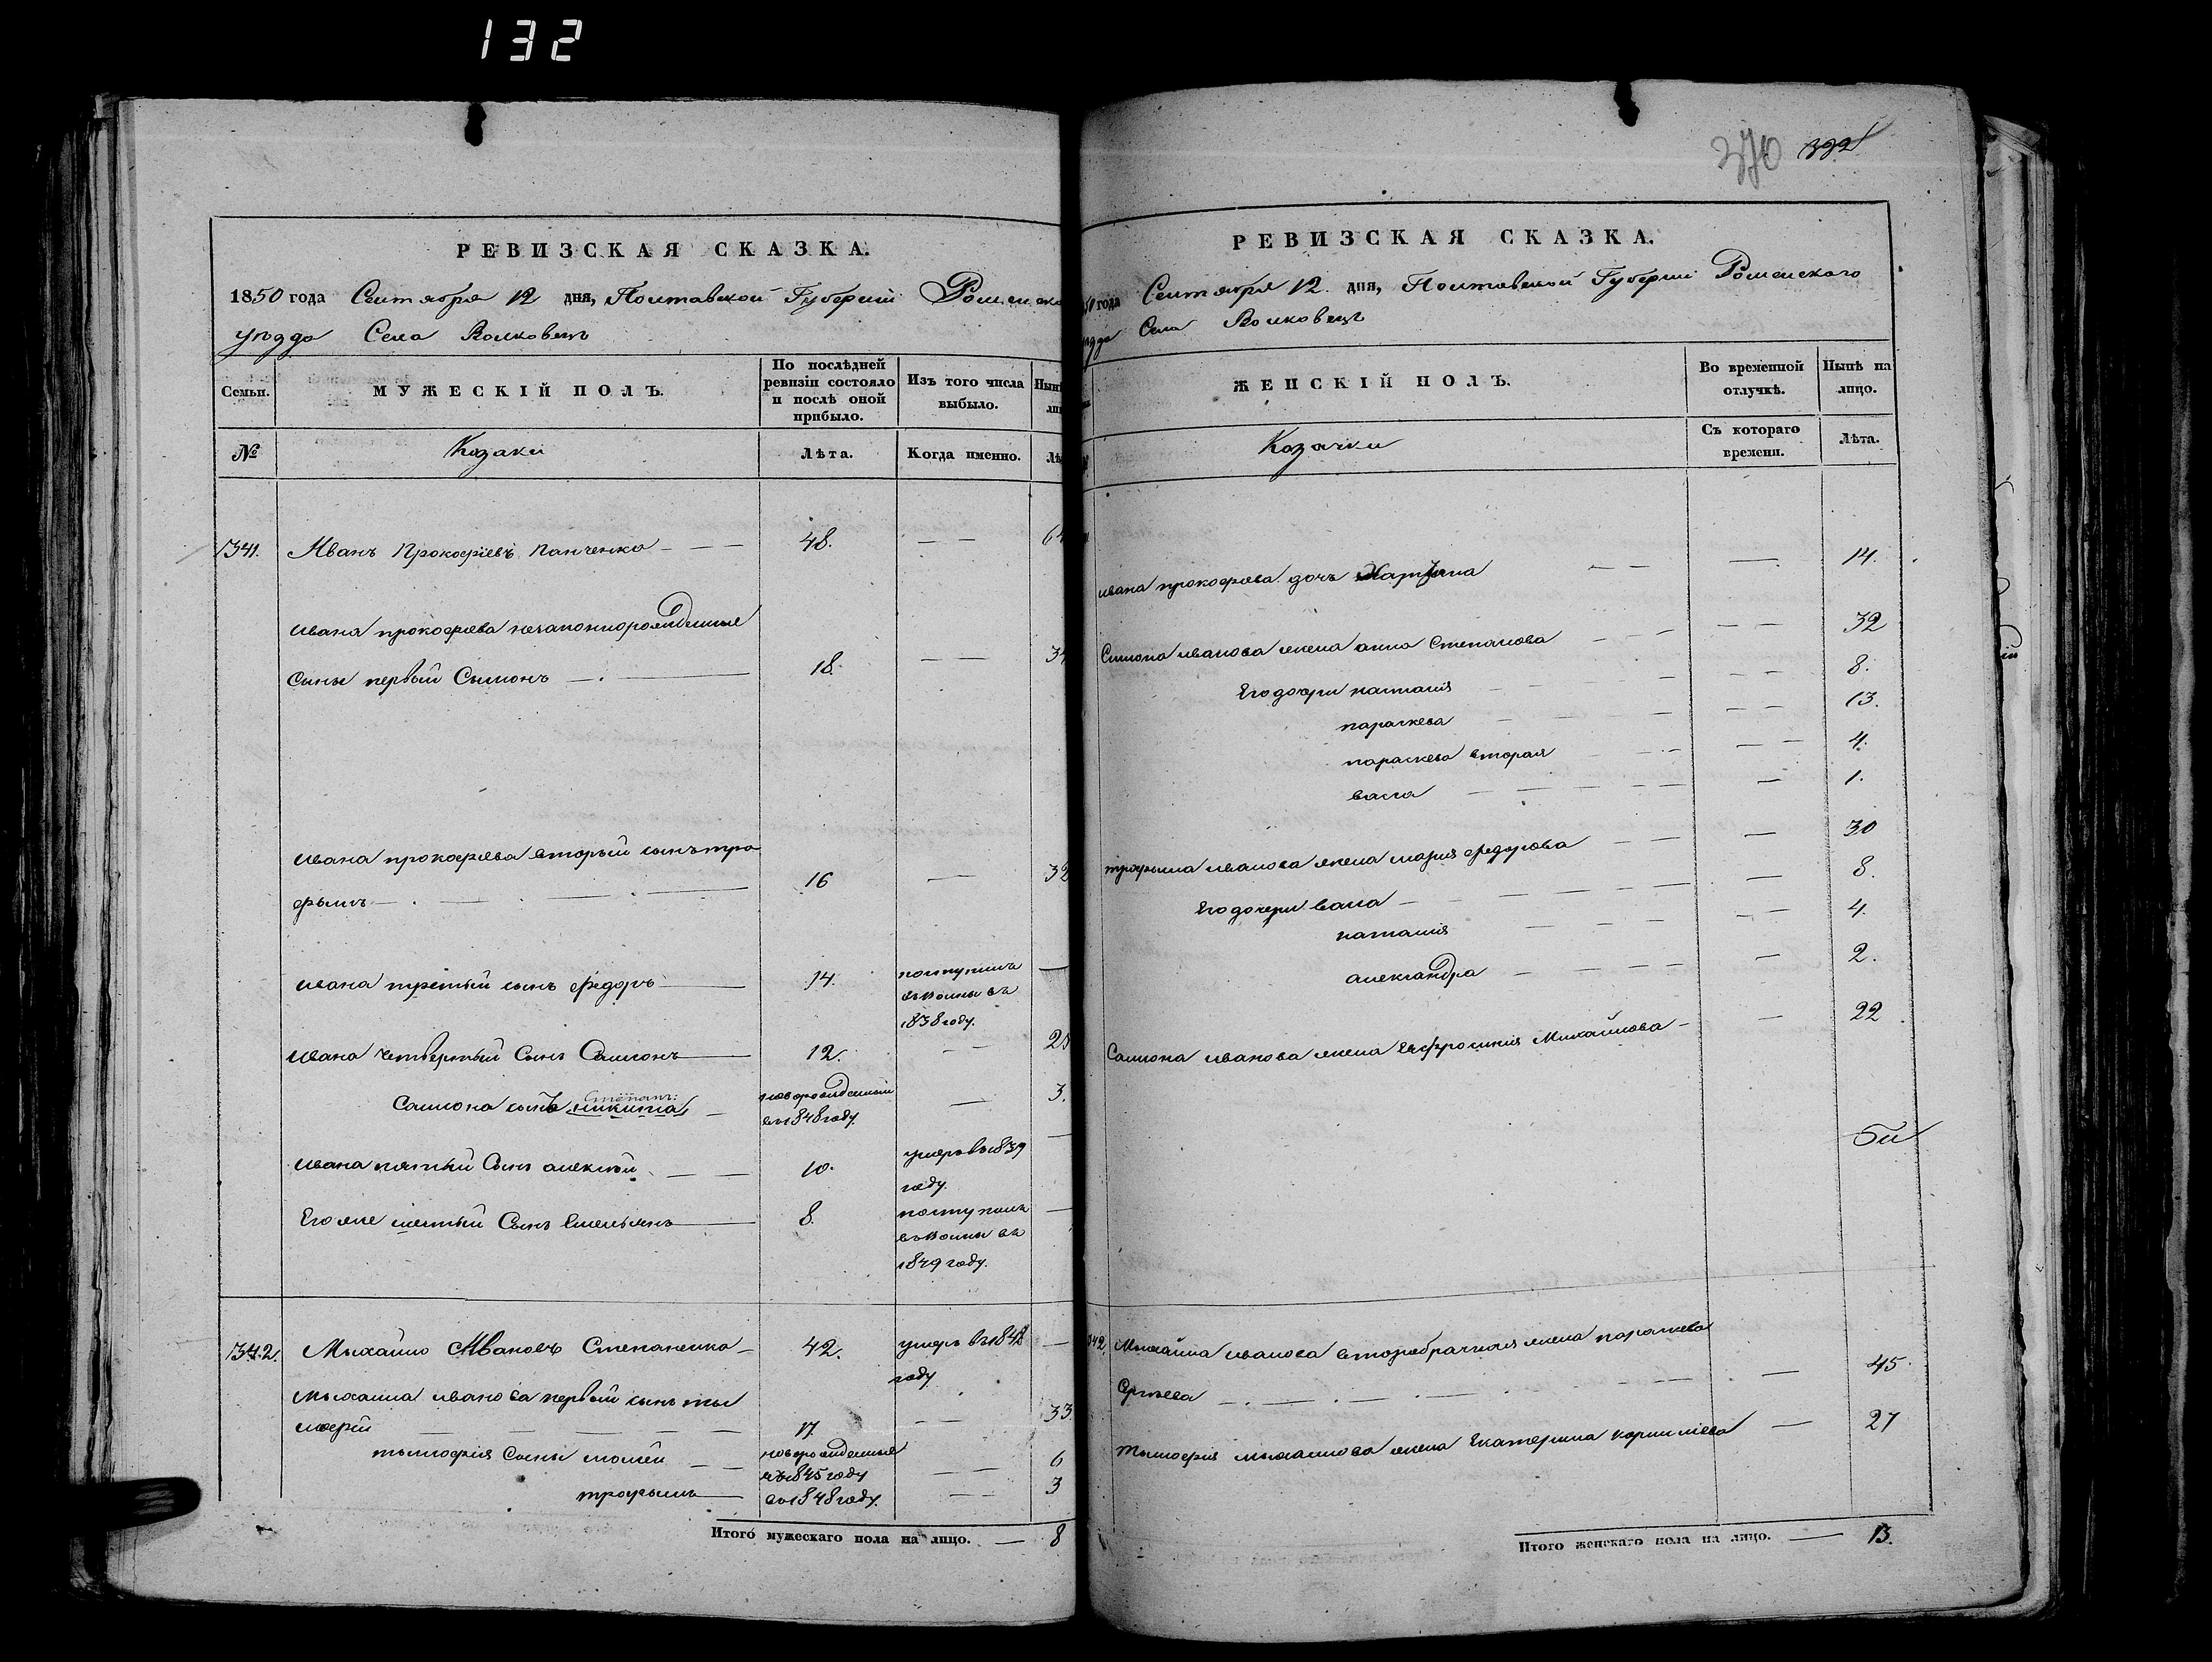 132
370 392
РЕВИЗСКАЯ СКАЗКА.
1850 года Сентября 12 дня, Полтавской Губерніи Роменско
уѣзда Села Волковець
Семьи.
МУЖЕСКІЙ ПОЛЪ.
По послѣдней ревизіи состояло и послѣ оной прибыло.
Изъ того числа выбыло.
№
Козаки
Лѣта.
Когда именно.
1341. Иванъ Прокофіевъ Панченко 48. 64
Ивана прокофіева незаконнорожденные
сыны первый Сымонъ 18. 34
Ивана прокофіева вторый сынъ тро
фымъ 16 32
Ивана третый сынъ федоръ 14. поступилъ
въ воины въ
1838 году.
Ивана четвертый Сынъ Самсонъ 12. 28
Степанъ:
Самсона сынъ никита новорожденный
въ 1848 году 3.
Ивана пятый Сынъ алексѣй 10. умеръ въ 1839
году.
Его же шестый Сынъ Емельянъ 8. поступилъ
въ воины въ
1849 году.
1342. Мыхайло Ивановъ Степаненко 42. умеръ въ 1848
году
Мыхаила иванова первый сынъ ты
мофей 17. 33.
тымофія Сыны мосей новорожденные
въ 1845 году 6
трофымъ въ 1848 году. 3
Итого мужескаго пола на лицо. — 8
РЕВИЗСКАЯ СКАЗКА.
50 года Сентября 12 дня, Полтавской Губерніи Роменского
Села Волковець
ЖЕНСКІЙ ПОЛЪ.
Во временной отлучкѣ.
Нынѣ на лицо.
Козачки
Съ котораго времени.
Лѣта.
ивана прокофіева дочь 14.
Симона иванова жена анна Степанова 32
Его дочери наталія 8.
параскева 13.
параскева вторая 4.
васса 1.
трофыма иванова жена марія федорова 30
Его дочери васса 8.
наталія 4.
александра 2.
Самсона иванова жена Евфросинія Михайлова 22
342. Мыхайла иванова второбрачная жена параскева
Сергѣева 45.
Тымофія мыхаилова жена Екатерина корниліева 27
Итого женскаго пола на лицо. — 13.